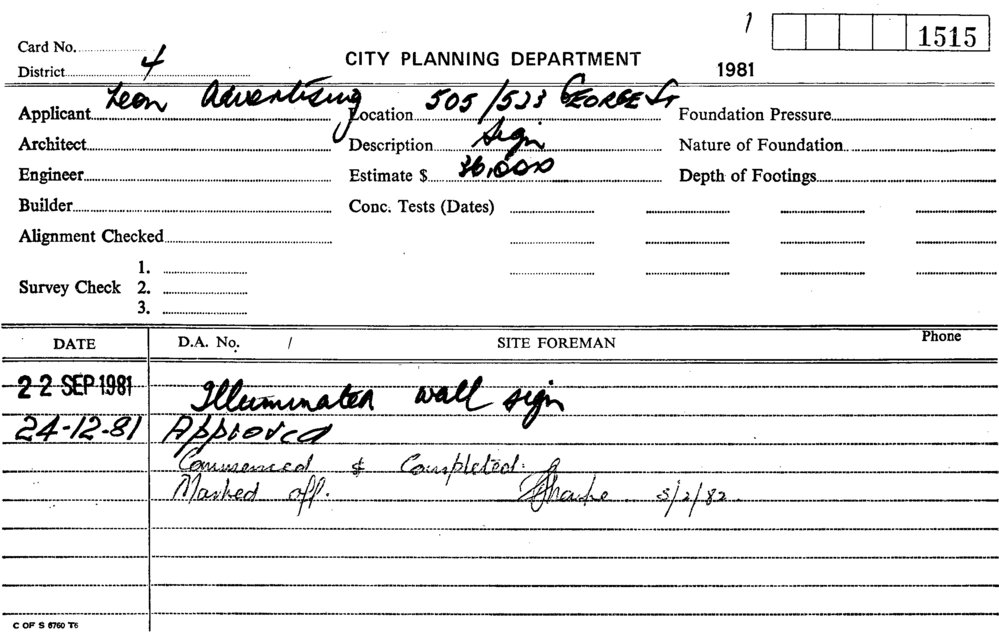 1 1515
Card No.
District 4
CITY PLANNING DEPARTMENT
1981
Applicant Leon Advertising Location 505/523 GEORGE ST Foundation Pressure
Architect Description Sign Nature of Foundation
Engineer Estimate $ 36,000 Depth of Footings
Builder Conc. Tests (Dates)
Alignment Checked
1.
Survey Check 2.
3.
DATE D.A. No. / SITE FOREMAN Phone
22 SEP 1981 Illuminated wall sign
24-12-81 Approved
Commenced & Completed.
Marked off. 5/2/82
C OF S 6760 T6